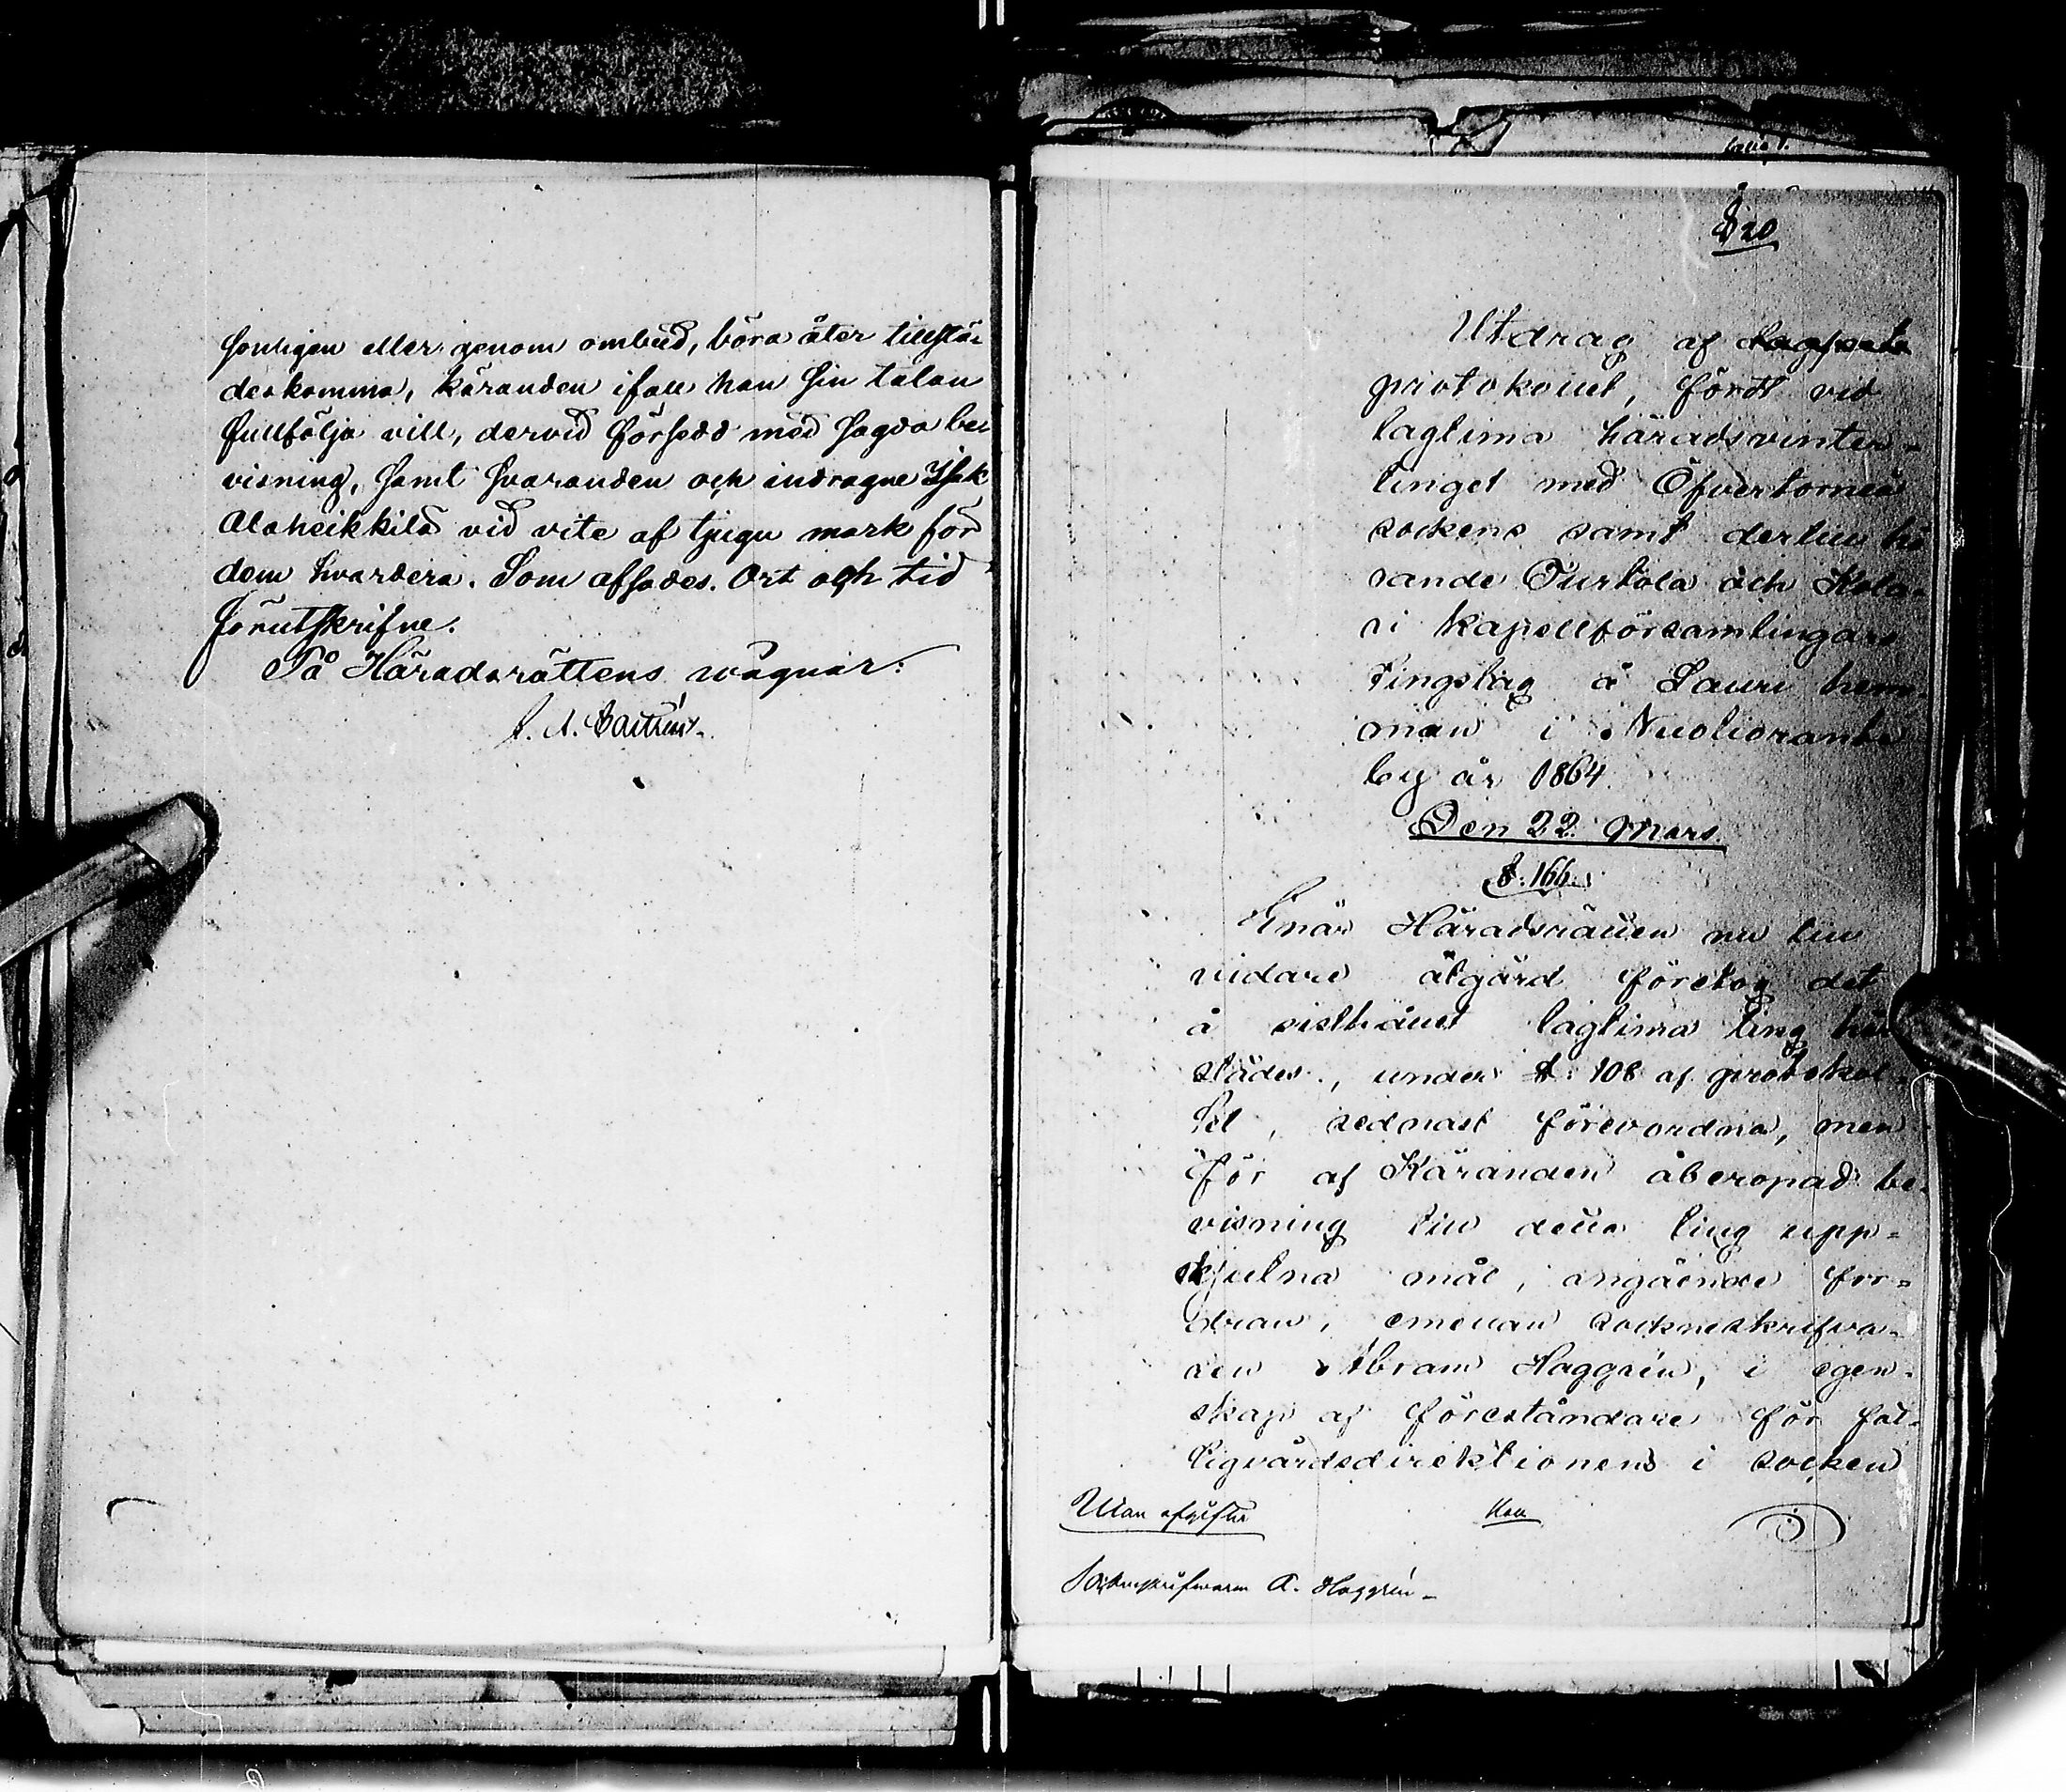 sonligen eller genom ombud, böra åter tillstä-
deskomma, käranden ifall han sin talan
fullfölja vill, dervid försedd med sagda be-
visning, samt svaranden och indragne Isak
Alaheikkilä vid vite af tjugu mark för
dem hvardera. Som afsades. Ort och tid
förutskrifne.
På Häradsrättens wägnar:
§ 20
Utdrag af
protokollet, fördt vid
lagtima häradsvinter-
tinget med Öfvertorneå
sockens samt dertill hö
rande Turtola och Kola-
ri kapellförsamlingars
Tingslag å Lauri hem-
man i Nuolioranta
by år 1864.
Den 22 Mars.
§. 166.
Emär Häradsrätten nu till
vidare åtgärd företog det
å sisthållet lagtima ting här
städes, under §. 108 af protokol-
let, sednast förevordna, men
för af Käranden åberopad be-
visning till detta ting upp-
skjutna mål, angående for-
dran, emellan sockneskrifva-
ren Abram Haggrén, i egen-
skap af föreståndare för fat-
tigvårdsdirektionens i socken
Utan afgifter
Sockneskrifvaren A. Haggrén